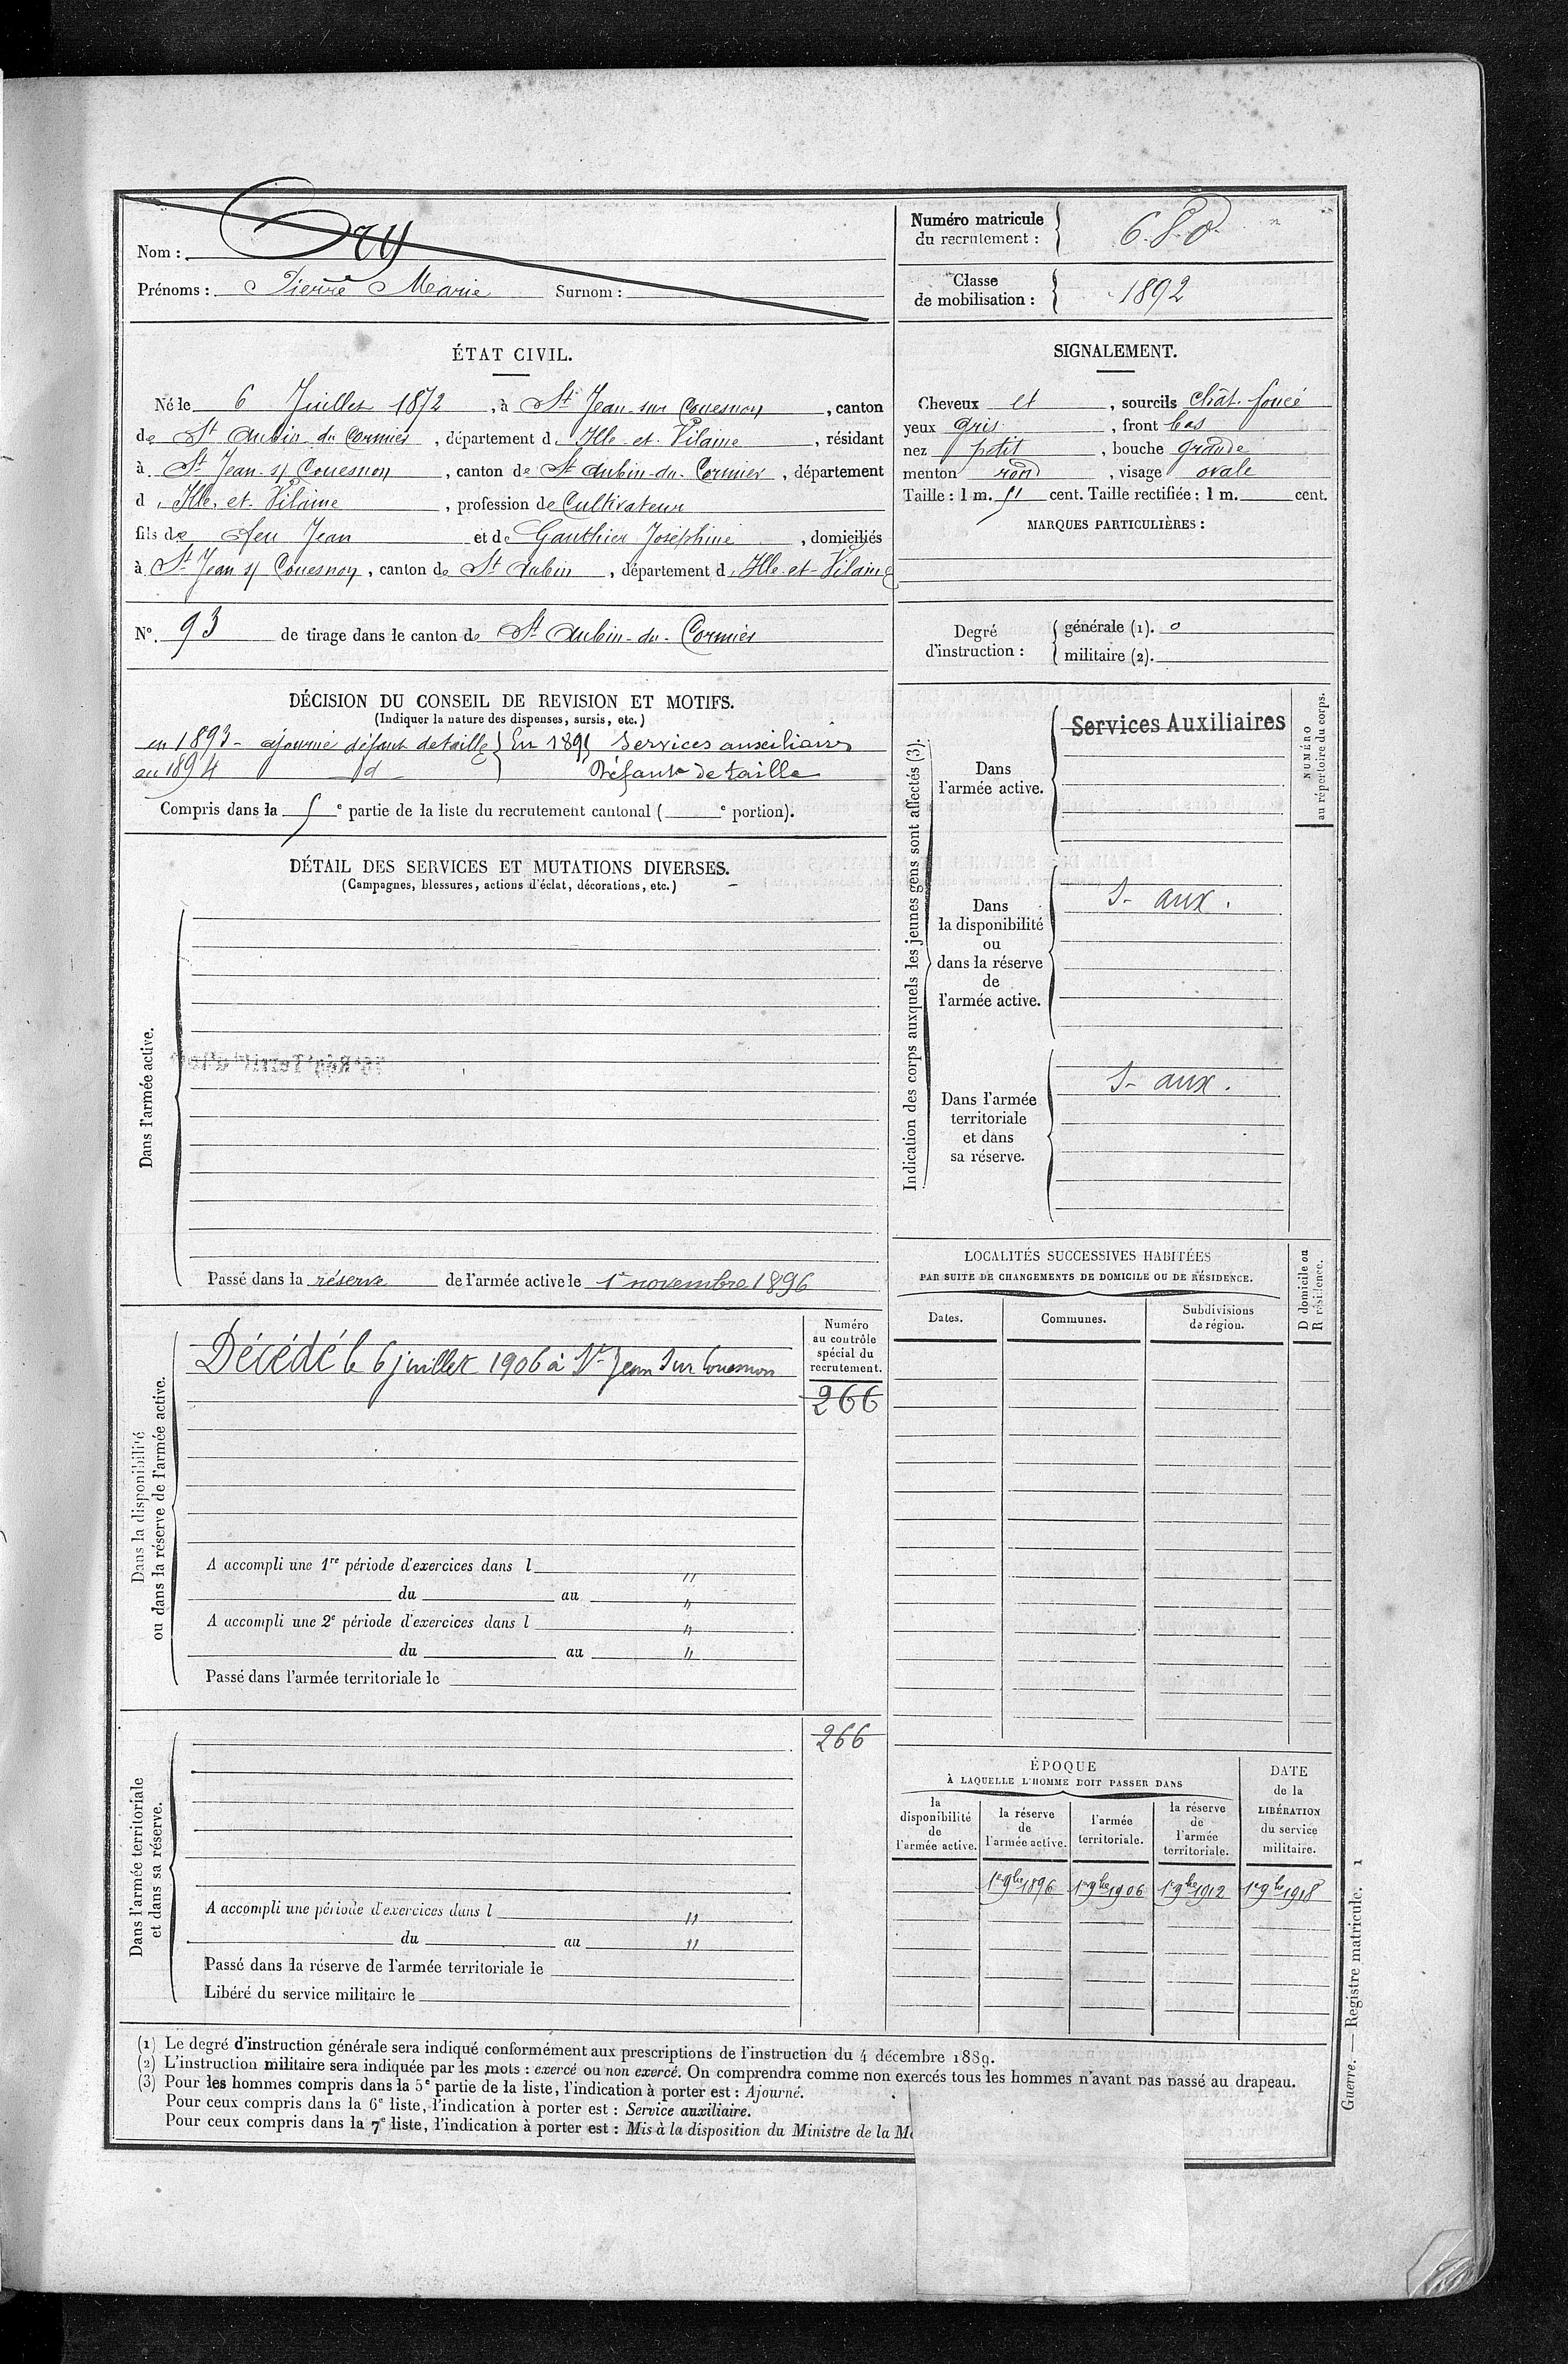 Nom : Ory
Prénoms : Pierre Marie Surnom :
Numéro matricule du recrutement : 680
Classe de mobilisation : 1892
ÉTAT CIVIL.
Né le 6 Juillet 1872, à St Jean sur Couesnon, canton
de St Aubin du Cormier, département d'Ille et Vilaine, résidant
à St Jean s/ Couesnon, canton de St Aubin-du-Cormier, département
d'Ille et Vilaine, profession de Cultivateur
fils de feu Jean et de Gauthier Joséphine, domiciliés
à St Jean s/ Couesnon, canton de St Aubin, département d'Ille-et-Vilaine
N°. 93 de tirage dans le canton de St Aubin-du-Cormier
SIGNALEMENT.
Cheveux et, sourcils chât. foncé
yeux gris, front bas
nez petit, bouche grande
menton rond, visage ovale
Taille : 1 m. 51 cent. Taille rectifiée : 1 m. cent.
MARQUES PARTICULIÈRES :
Degré d'instruction :
générale (1). 0
militaire (2).
DÉCISION DU CONSEIL DE REVISION ET MOTIFS.
(Indiquer la nature des dispenses, sursis, etc.)
en 1893 - ajourné défaut de taille } En 1895 Services auxiliaires
en 1894 d Défaut de taille
Compris dans la 5e partie de la liste du recrutement cantonal ( e portion).
DÉTAIL DES SERVICES ET MUTATIONS DIVERSES.
(Campagnes, blessures, actions d'éclat, décorations, etc.)
Dans l'armée active.
Passé dans la réserve de l'armée active le 1er novembre 1896
Indication des corps auxquels les jeunes gens sont affectés (3).
NUMÉRO
au répertoire du corps.
Dans
l'armée active.
Services Auxiliaires
Dans
la disponibilité
ou
dans la réserve
de
l'armée active.
S- aux.
Dans l'armée
territoriale
et dans
sa réserve.
S- aux.
Dans la disponibilité
ou dans la réserve de l'armée active.
Décédé le 6 juillet 1906 à St Jean sur Couesnon
Numéro
au contrôle
spécial du
recrutement.
266
A accompli une 1re période d'exercices dans l "
du au "
A accompli une 2e période d'exercices dans l "
du au "
Passé dans l'armée territoriale le
Dans l'armée territoriale
et dans sa réserve.
266
A accompli une période d'exercices dans l "
du au "
Passé dans la réserve de l'armée territoriale le
Libéré du service militaire le
LOCALITÉS SUCCESSIVES HABITÉES
PAR SUITE DE CHANGEMENTS DE DOMICILE OU DE RÉSIDENCE.
D domicile ou
R résidence.
Dates.
Communes.
Subdivisions
de région.
ÉPOQUE
À LAQUELLE L'HOMME DOIT PASSER DANS
la
disponibilité
de
l'armée active.
la réserve
de
l'armée active.
l'armée
territoriale.
la réserve
de
l'armée
territoriale.
DATE
de la
LIBÉRATION
du service
militaire.
1er 9bre 1896 1er 9bre 1906 1er 9bre 1912 1er 9bre 1918
(1) Le degré d'instruction générale sera indiqué conformément aux prescriptions de l'instruction du 4 décembre 1889.
(2) L'instruction militaire sera indiquée par les mots : exercé ou non exercé. On comprendra comme non exercés tous les hommes n'ayant pas passé au drapeau.
(3) Pour les hommes compris dans la 5e partie de la liste, l'indication à porter est : Ajourné.
Pour ceux compris dans la 6e liste, l'indication à porter est : Service auxiliaire.
Pour ceux compris dans la 7e liste, l'indication à porter est : Mis à la disposition du Ministre de la M
Guerre. — Registre matricule. 1